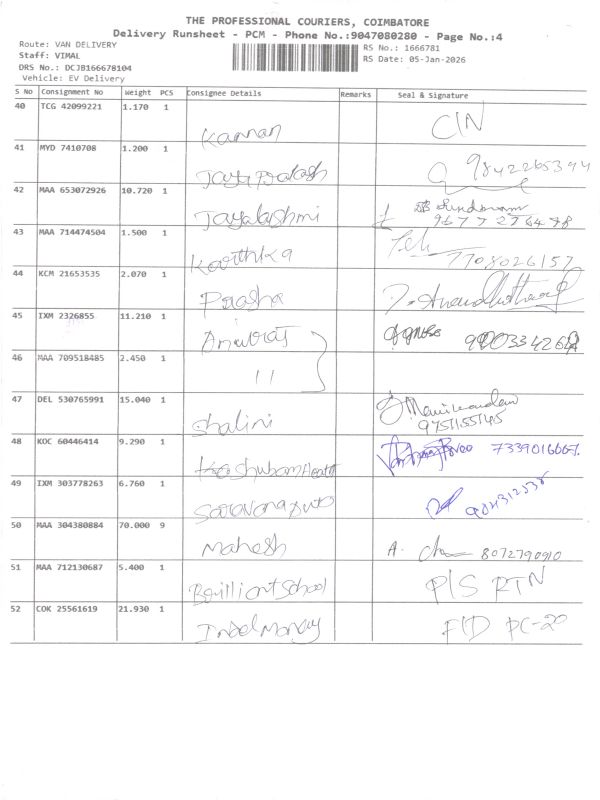 THE PROFESSIONAL COURIERS, COIMBATORE
Delivery Runsheet - PCM - Phone No.:9047080280 - Page No.:4
Route: VAN DELIVERY
Staff: VIMAL
DRS No.: DCJB166678104
Vehicle: EV Delivery
RS No.: 1666781
RS Date: 05-Jan-2026
S No Consignment No Weight PCS Consignee Details Remarks Seal & Signature
40 TCG 42099221 1.170 1 Kannan C/N
41 MYD 7410708 1.200 1 9842265394
42 MAA 653072926 10.720 1 Jayalashmi 9677276478
43 MAA 714474504 1.500 1 Karthika 7708026157
44 KCM 21653535 2.070 1 Prasha
45 IXM 2326855 11.210 1
46 MAA 709518485 2.450 1 11
47 DEL 530765991 15.040 1 Shalini 9751155145
48 KOC 60446414 9.290 1 7339016667
49 IXM 303778263 6.760 1
50 MAA 304380884 70.000 9 Mahesh A. 8072790910
51 MAA 712130687 5.400 1 Brilliant School P/S RTN
52 COK 25561619 21.930 1 PC-20